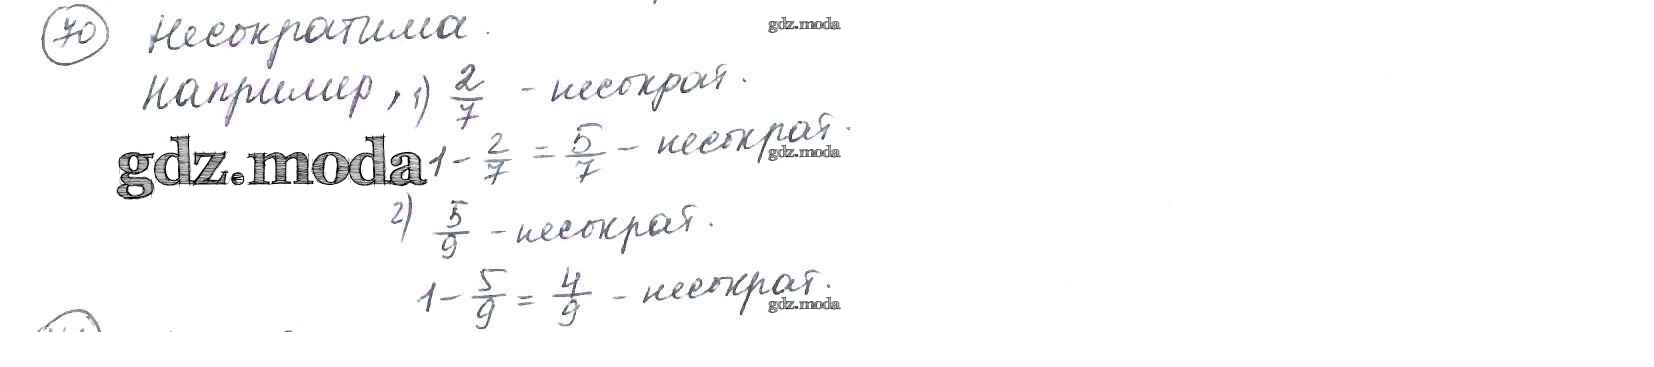 70 Несократима. gdz.moda
Например, 1) 2/7 - несократ.
gdz.moda 1 - 2/7 = 5/7 - несократ. gdz.moda
2) 5/9 - несократ.
1 - 5/9 = 4/9 - несократ. gdz.moda